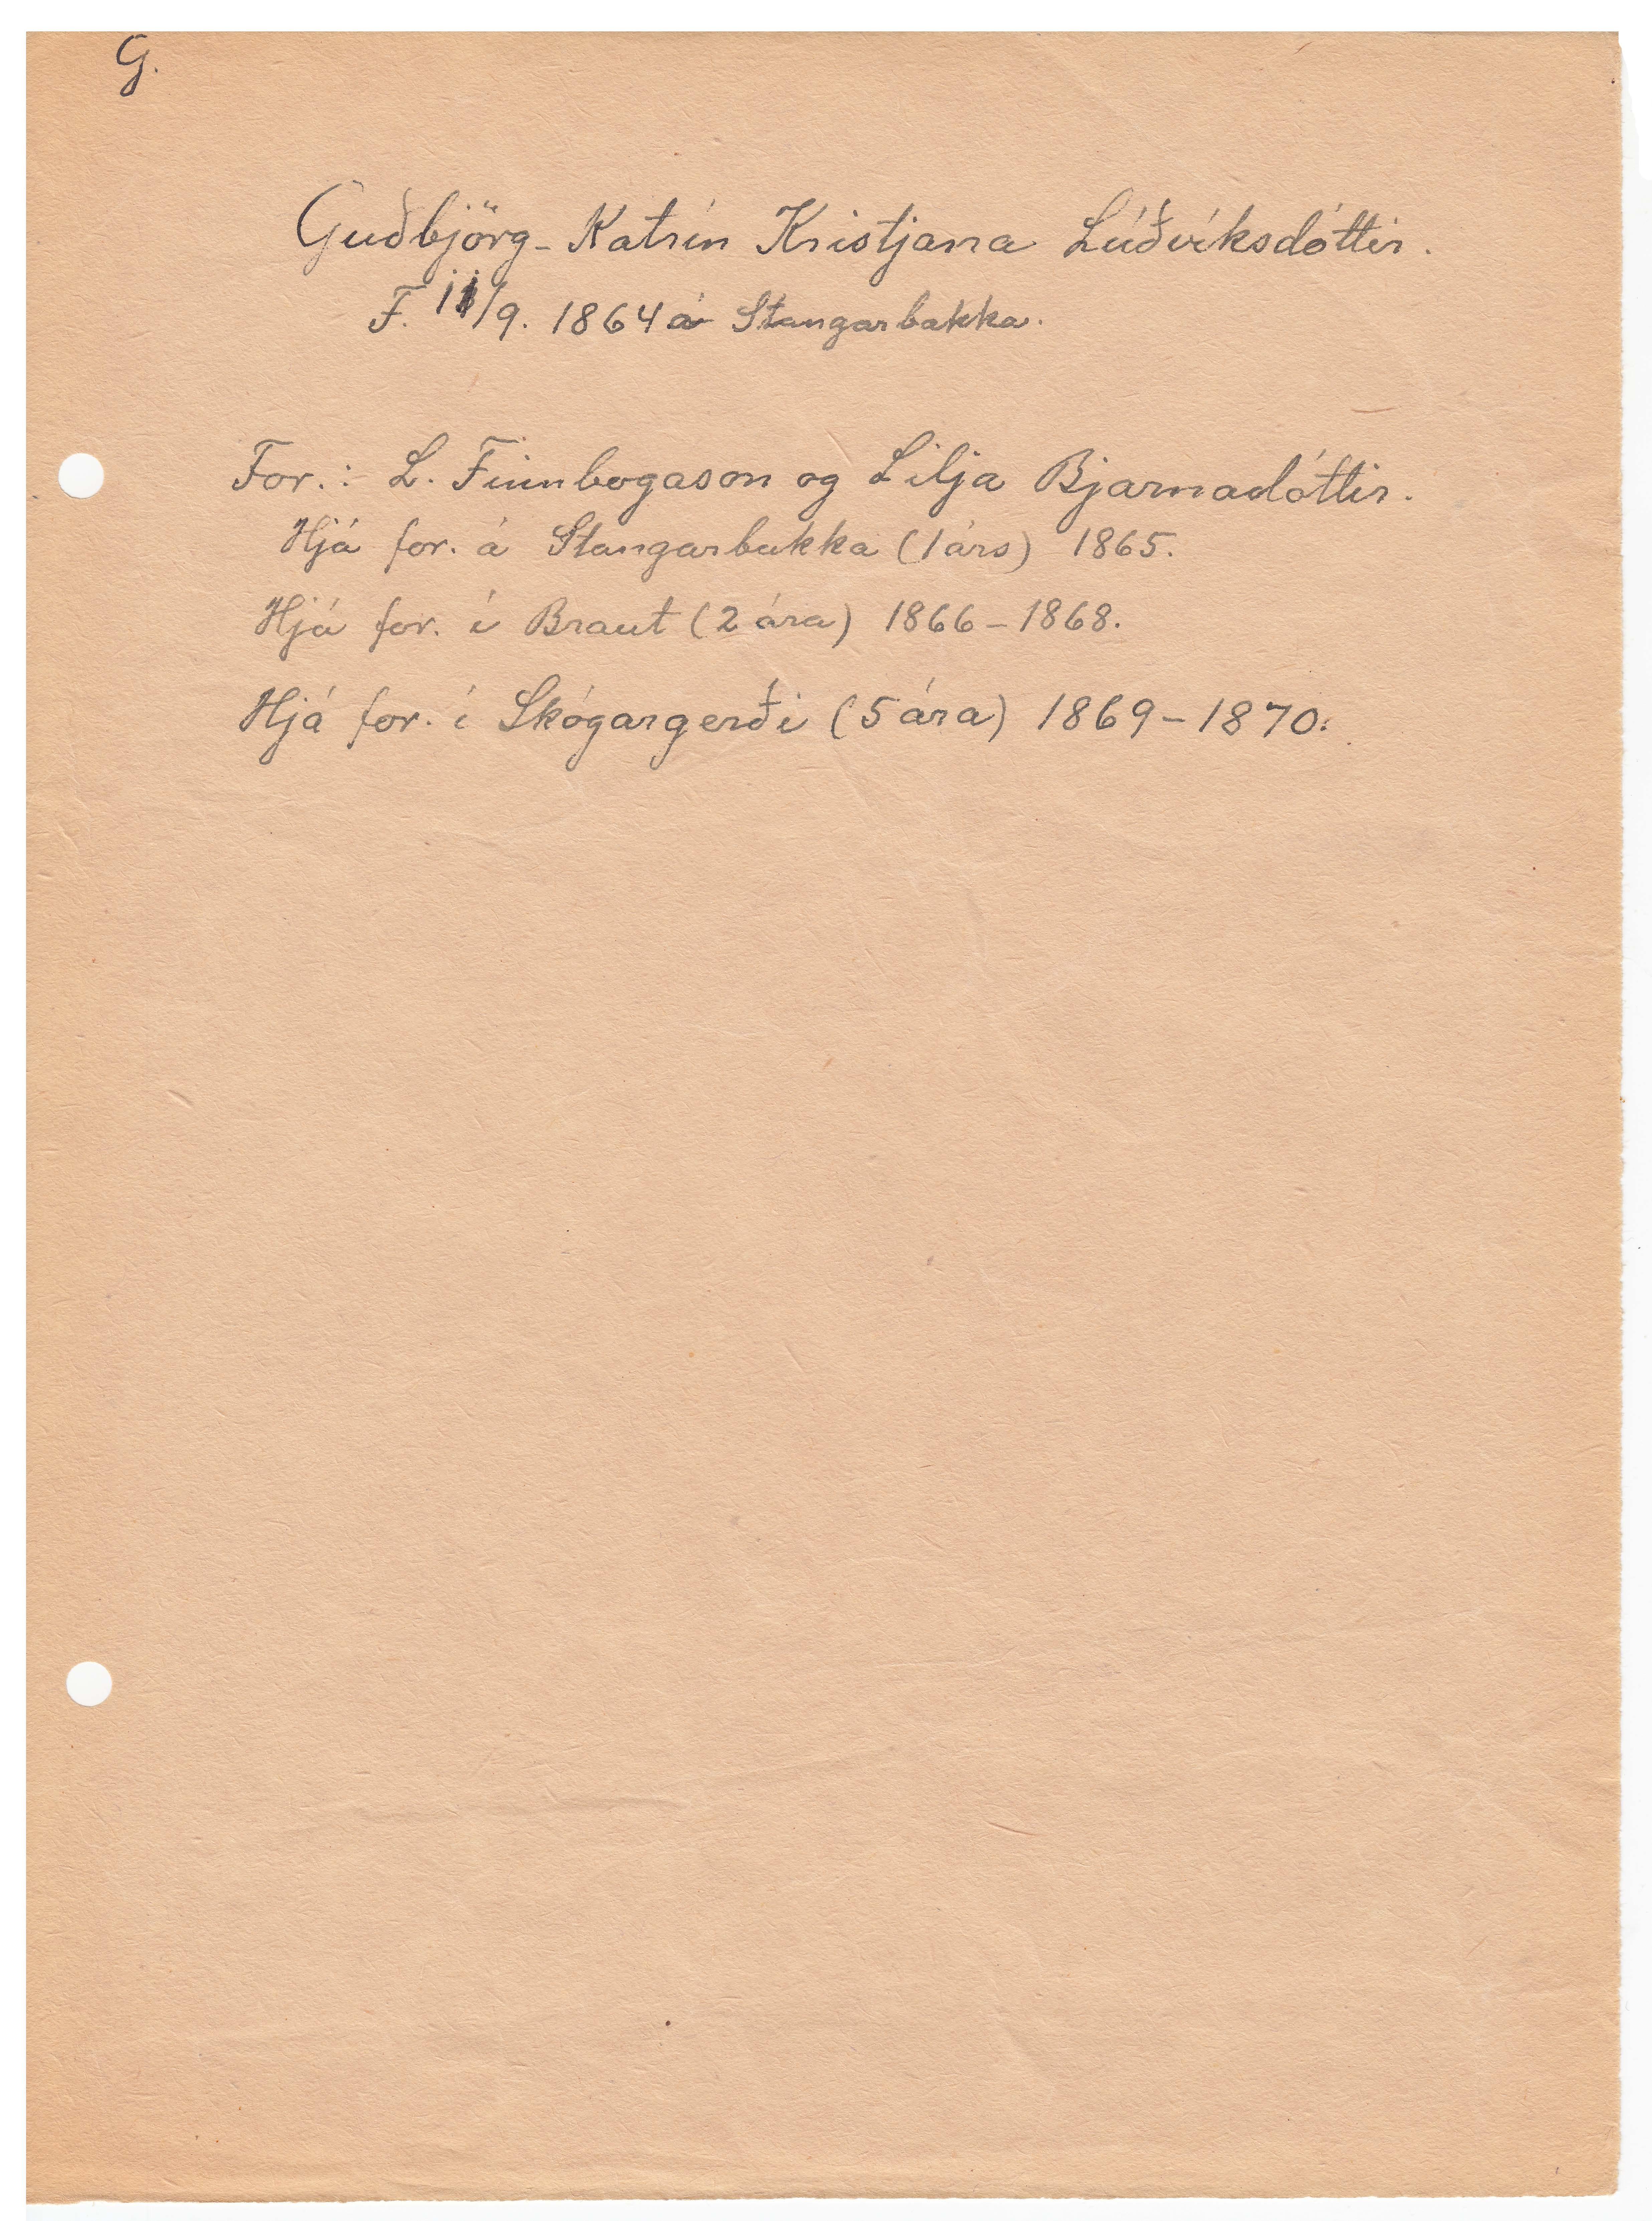 G.
Guðbjörg-Katrín Kristjana Lúðvíksdóttir.
F. 11/9. 1864 á Stangarbakka.
For.: L. Finnbogason og Lilja Bjarnadóttir.
Hjá for. á Stangarbakka (1árs) 1865.
Hjá for. í Braut (2 ára) 1866-1868.
Hjá for. í Skógargerði (5 ára) 1869-1870.